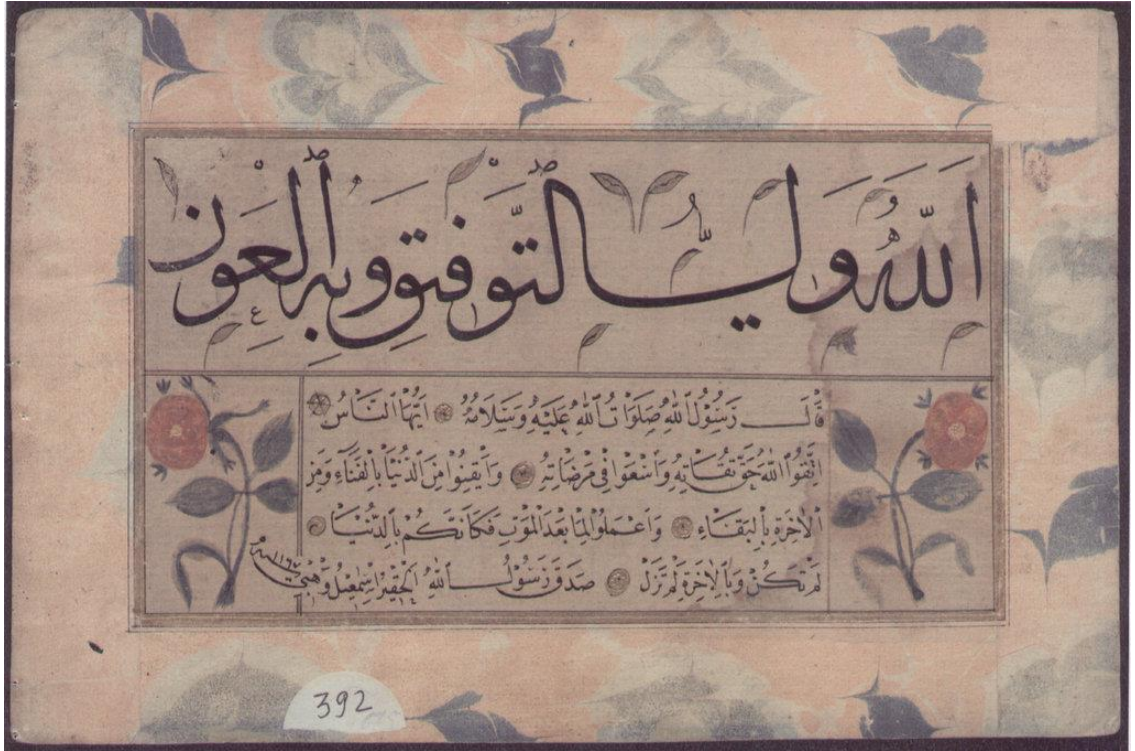 اَللّٰهُ وَلِيُّ التَّوْفِيقِ وَبِهِ الْعَوْنُ
قَالَ رَسُوْلُ اللّٰهِ صَلَوَاتُ اللّٰهِ عَلَيْهِ وَسَلَامُهُ اَيُّهَا النَّاسُ
اِتَّقُوا اللّٰهَ حَقَّ تُقَاتِهِ وَاسْعَوْا فِي مَرْضَاتِهِ وَاَيْقِنُوا مِنَ الدُّنْيَا بِالْفَنَاءِ وَمِنَ
الْاٰخِرَةِ بِالْبَقَاءِ وَاعْمَلُوا لِمَا بَعْدَ الْمَوْتِ فَكَاَنَّكُمْ بِالدُّنْيَا
لَمْ تَكُنْ وَبِالْاٰخِرَةِ لَمْ تَزَلْ صَدَقَ رَسُوْلُ اللّٰهِ الْحَقِيْرُ اِسْمٰعِيْلُ وَهْبِي
392